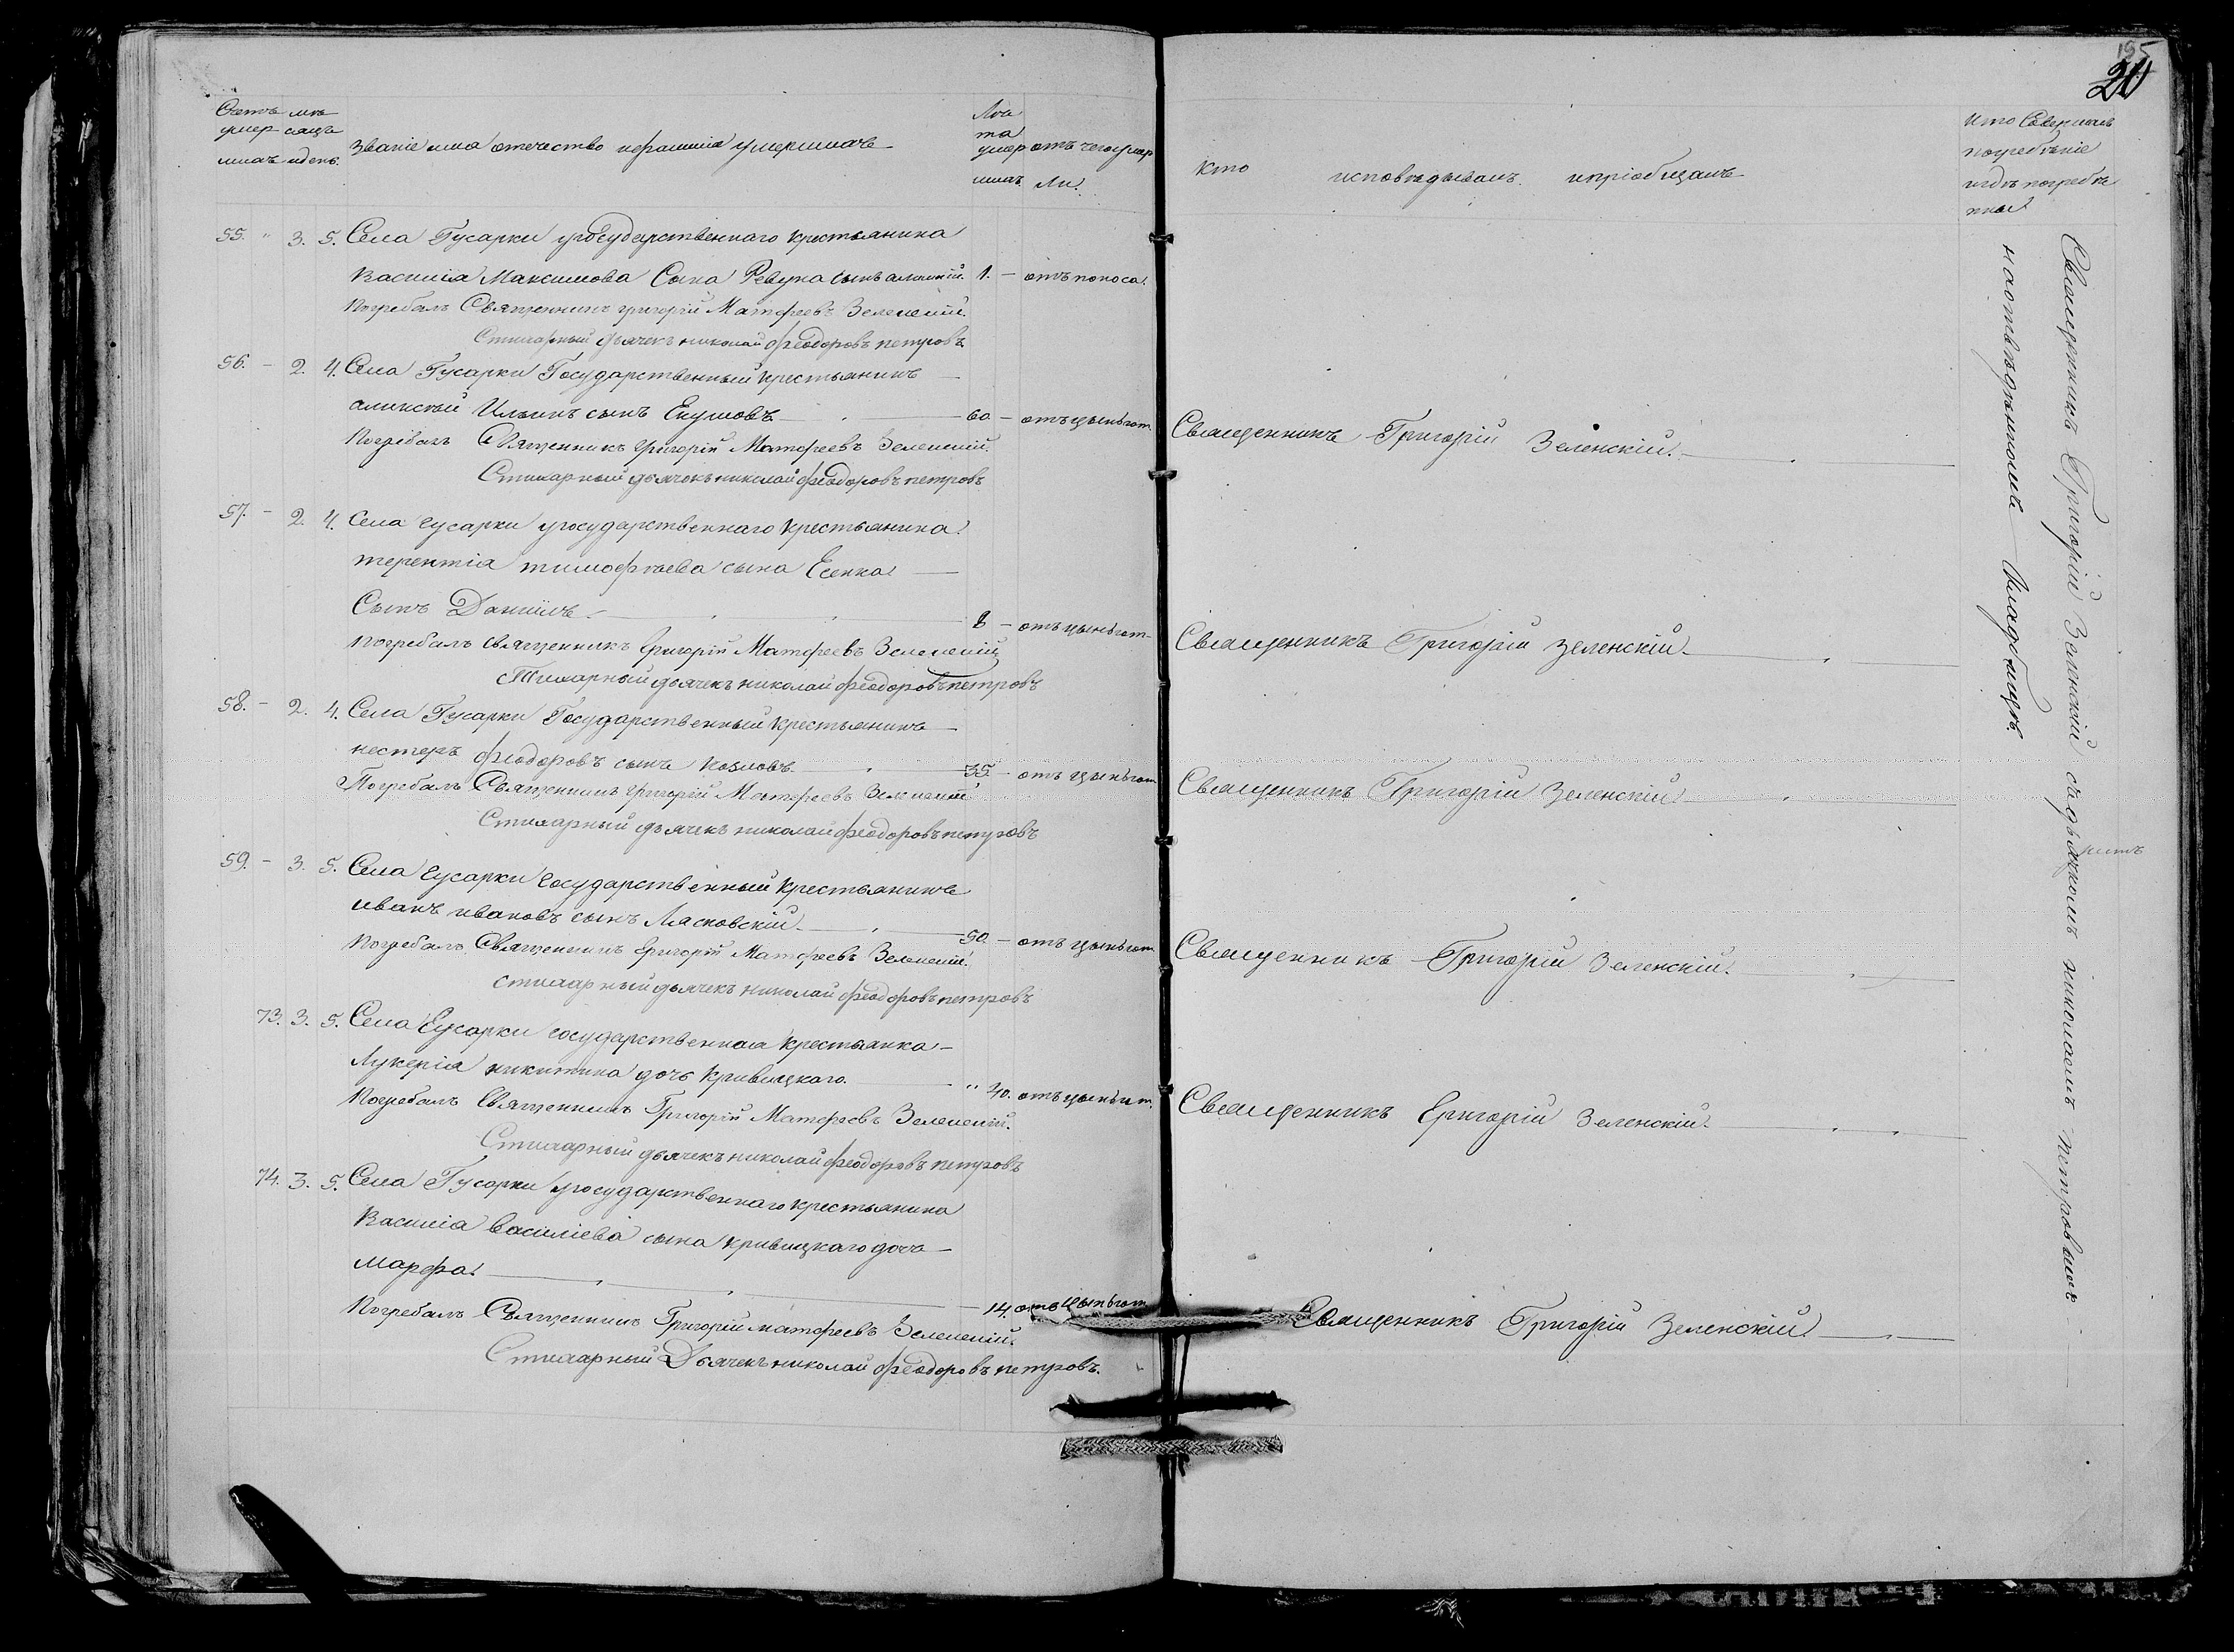 195
20
Счетъ мѣ
умер сяцъ
шихъ и день.
Званіе имя отечество и фамилія умершихъ
Лѣ
та
умер
шихъ
отъ чего умер
ли.
кто исповѣдывалъ и пріобщалъ
Кто совершалъ
погребѣніе
и гдѣ погребѣ
ны
55. " 3. 5. Села Гусарки у государственнаго крестьянина
Василія Максимова Сына Ревуна сынъ 1. – отъ поноса.
Погребалъ Священникъ Григорій Матфеевъ Зеленскій.
Стихарный дьячекъ николай феодоровъ петровъ
56. – 2. 4. Села Гусарки Государственный крестьянинъ
Ильинъ сынъ 60 – отъ цынгот. Священникъ Григорій Зеленскій.
Погребалъ Священникъ Григорій Матфеевъ Зеленскій.
Стихарный дьячокъ николай феодоровъ петровъ
57. – 2. 4. Села гусарки у государственнаго крестьянина
терентія тимофѣева сына Есенка
Сынъ Даніилъ 8 – отъ цынгот. Священникъ Григорій Зеленскій
погребалъ священникъ Григорій Матфеевъ Зеленскій
Стихарный дьячекъ николай феодоровъ петровъ
58. – 2. 4. Села Гусарки Государственный крестьянинъ
нестеръ феодоровъ сынъ козловъ 35 – отъ цынгот Священникъ Григорій Зеленскій
Погребалъ Священникъ Григорій Матфеевъ Зеленскій
Стихарный дьячекъ николай феодоровъ петровъ
59. – 3. 5. Села гусарки государственный крестьянинъ
иванъ ивановъ сынъ Лясковскій 50 – отъ цынгот. Священникъ Григорій Зеленскій.
Погребалъ Священникъ Григорій Матфеевъ Зеленскій.
стихарный дьячекъ николай феодоровъ петровъ
73. 3. 5. Села Гусарки государственная крестьянка
Лукерія никитина дочь кривицкаго. " 40. отъ цынгот. Священникъ Григорій Зеленскій
Погребалъ Священникъ Григорій Матфеевъ Зеленскій.
Стихарный дьячекъ николай феодоровъ петровъ
74. 3. 5. Села Гусарки у государственнаго крестьянина
Василія василіева сына кривицкаго дочь
марфа. 14. отъ цынгот Священникъ Григорій Зеленскій.
Погребалъ Священникъ Григорій матфеевъ Зеленскій.
Стихарный Дьячекъ николай феодоровъ петровъ.
Священникъ Григорій Зеленскій съ дьячкомъ николаемъ петровымъ
на отвѣдѣнномъ кладбищѣ.